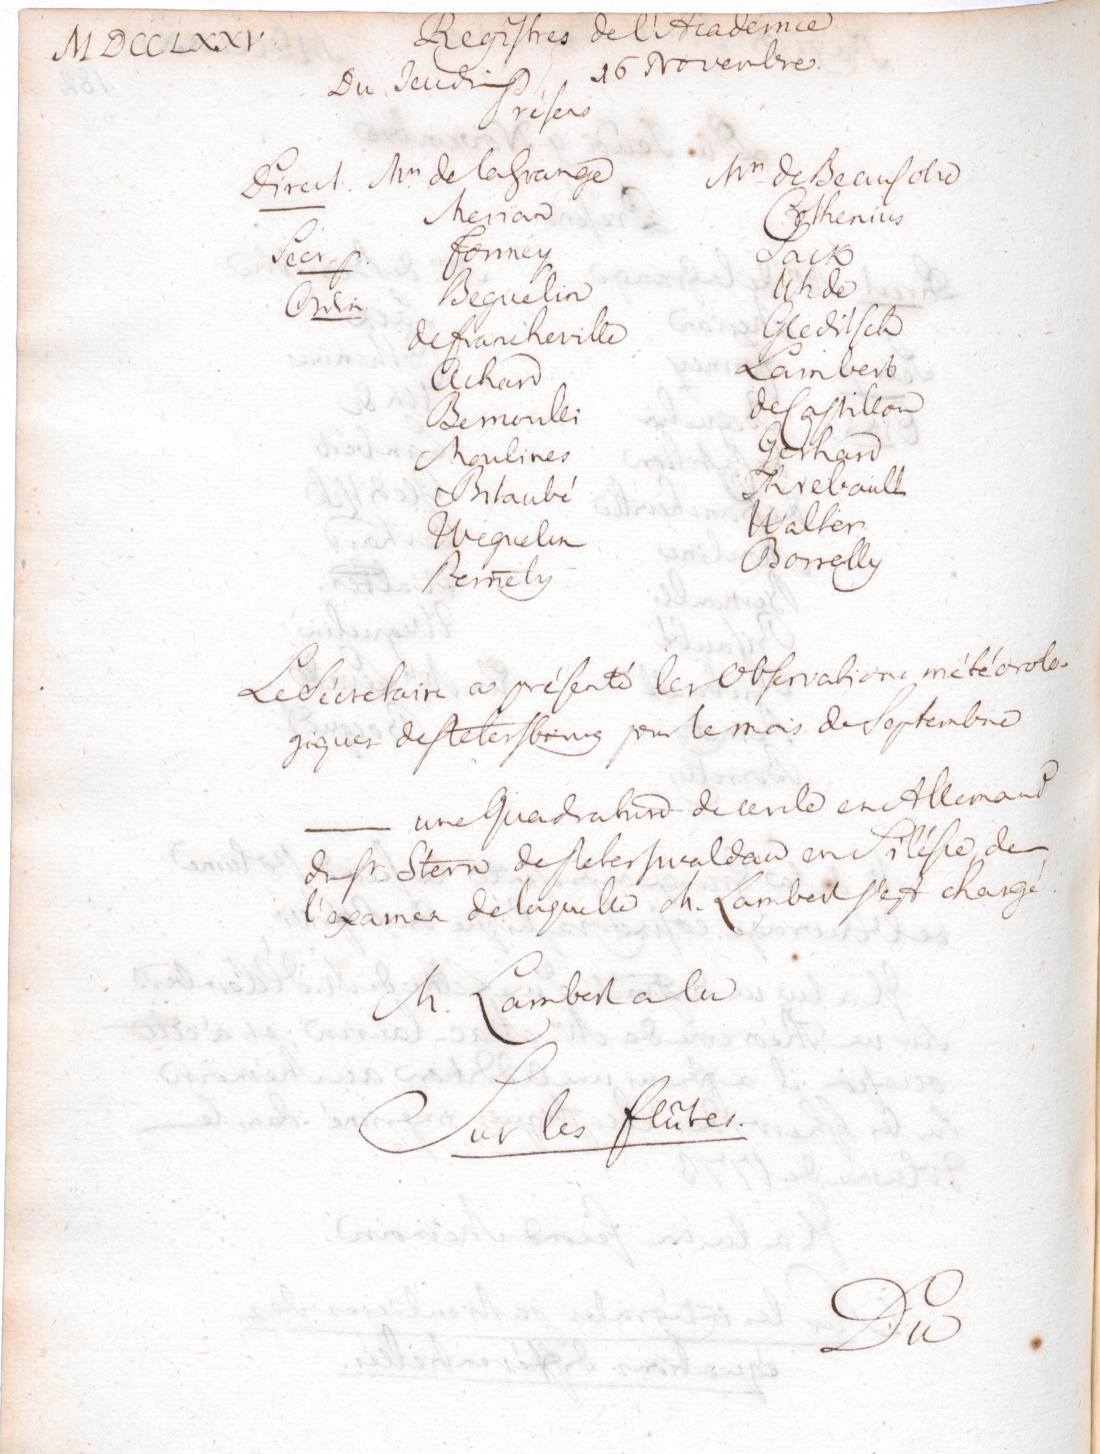 MDCCLXXV. Registres de l'Academie
Du Jeudi 16 Novembre.
Présens
Direct. Mrs. de la Grange Mrs. de Beausobre
Merian Cothenius
Secr. p. Formey Sack
Ordin Beguelin Uhde
de Francheville Gleditsch
Achard Lambert
Bernoulli de Castillon
Moulines Gerhard
Bitaubé Thiebault
Weguelin Walter
Pernety Borrelly
Le Sécretaire a présenté les Observations météorolo-
giques de Petersbourg pour le mois de Septembre
——— une Quadrature de cercle en Allemand
du Sr. Stern de Peterswaldau en Silésie, de
l'examen de laquelle M. Lambert s'est chargé.
M. Lambert a lu
Sur les flûtes.
Du